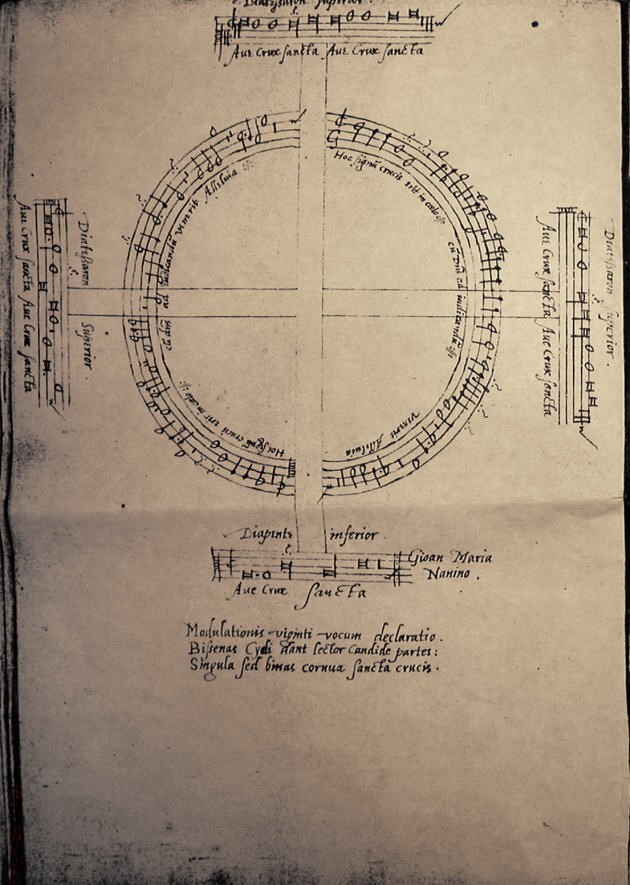 Diatessaron Superior.
Aue Crux sancta Aue Crux sancta
Hoc signũ crucis erit in cælo
cũ Dñs ad iudicandũ
venerit Alleluia
Hoc signũ crucis erit in cælo
cũ Dñs ad iudicandũ venerit Alleluia
Diatessaron Superior.
Aue Crux sancta Aue Crux sancta
Diatessaron Superior.
Aue Crux sancta Aue Crux sancta
Diapente inferior.
Gioan Maria
Nanino.
Aue Crux sancta
Modulationis viginti vocum declaratio.
Bissenas Cycli dant lector candide partes:
Singula sed binas cornua sanctæ crucis.